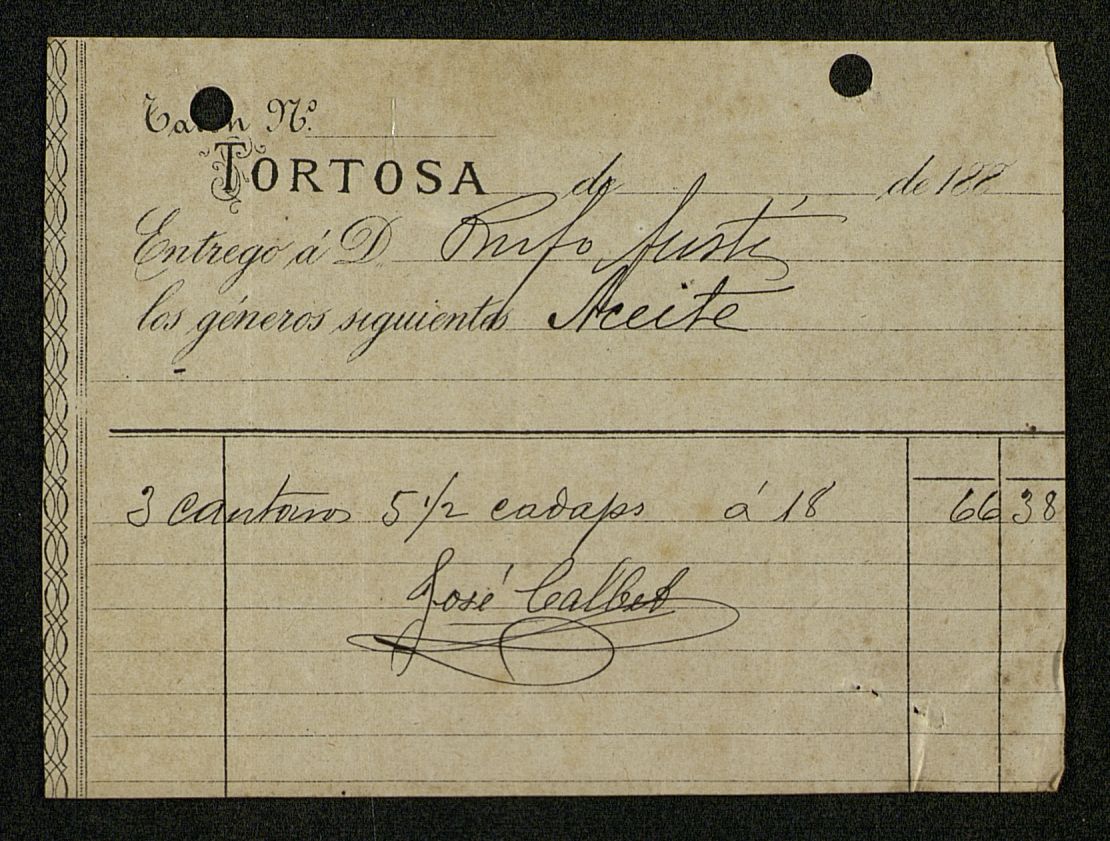 Talón Nº.
TORTOSA de de 188
Entregó á D. Rufo Justí
los géneros siguientes Aceite
3 cantaros 5 1/2 cadaps á 18 66 38
José Calbet